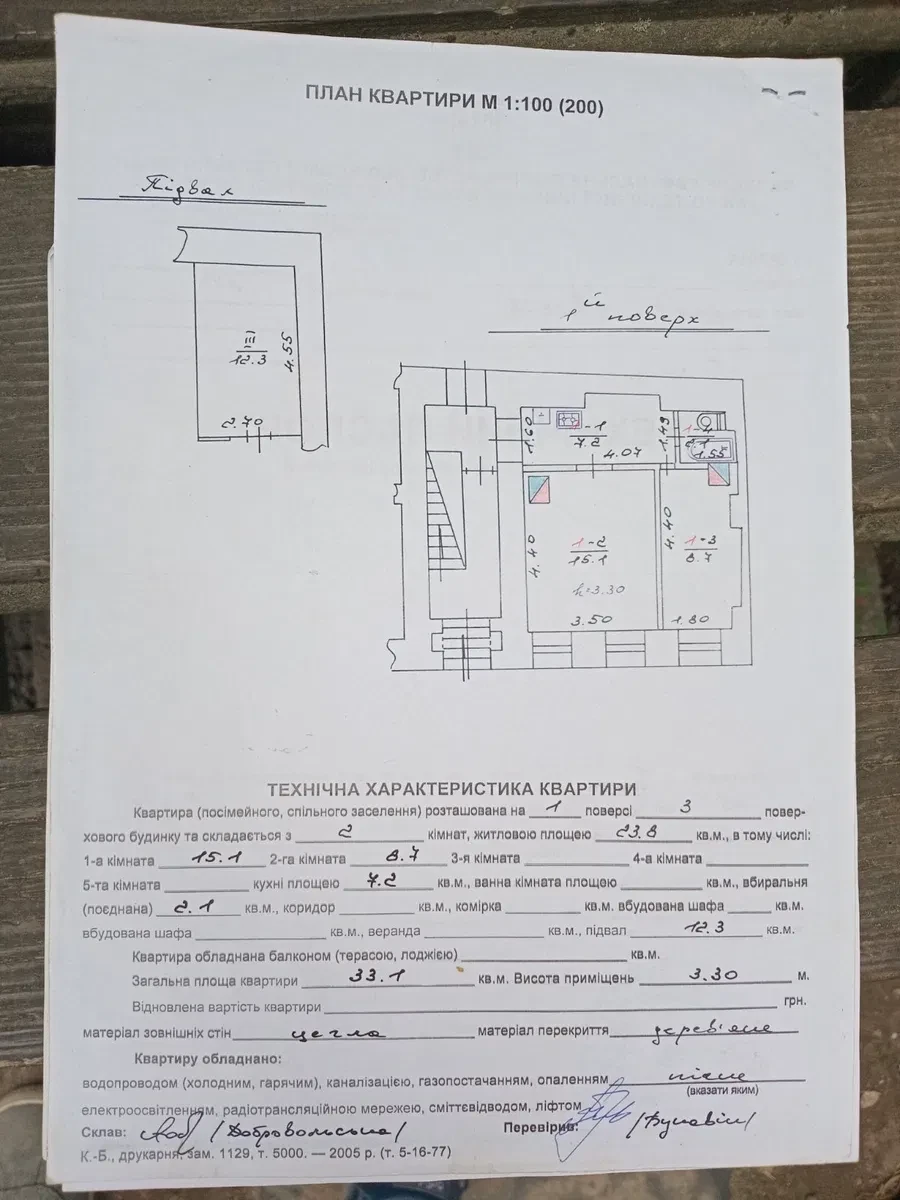 ПЛАН КВАРТИРИ М 1:100 (200)
Підвал
1й поверх
III
12.3
4.55
2.70
1.60
1-1
7.2
4.07
1.49
1-4
2.1
1.55
4.40
1-2
15.1
h=3.30
3.50
4.40
1-3
8.7
1.80
ТЕХНІЧНА ХАРАКТЕРИСТИКА КВАРТИРИ
Квартира (посімейного, спільного заселення) розташована на 1 поверсі 3 повер-
хового будинку та складається з 2 кімнат, житловою площею 23.8 кв.м., в тому числі:
1-а кімната 15.1 2-га кімната 8.7 3-я кімната 4-а кімната
5-та кімната кухні площею 7.2 кв.м., ванна кімната площею кв.м., вбиральня
(поєднана) 2.1 кв.м., коридор кв.м., комірка кв.м. вбудована шафа кв.м.
вбудована шафа кв.м., веранда кв.м., підвал 12.3 кв.м.
Квартира обладнана балконом (терасою, лоджією) кв.м.
Загальна площа квартири 33.1 кв.м. Висота приміщень 3.30 м.
Відновлена вартість квартири грн.
матеріал зовнішніх стін цегла матеріал перекриття дерев'яне
Квартиру обладнано:
водопроводом (холодним, гарячим), каналізацією, газопостачанням, опаленням пічне
(вказати яким)
електроосвітленням, радіотрансляційною мережею, сміттєвідводом, ліфтом
Склав: /Добровольська/ Перевірив:
К.-Б., друкарня, зам. 1129, т. 5000. — 2005 р. (т. 5-16-77)